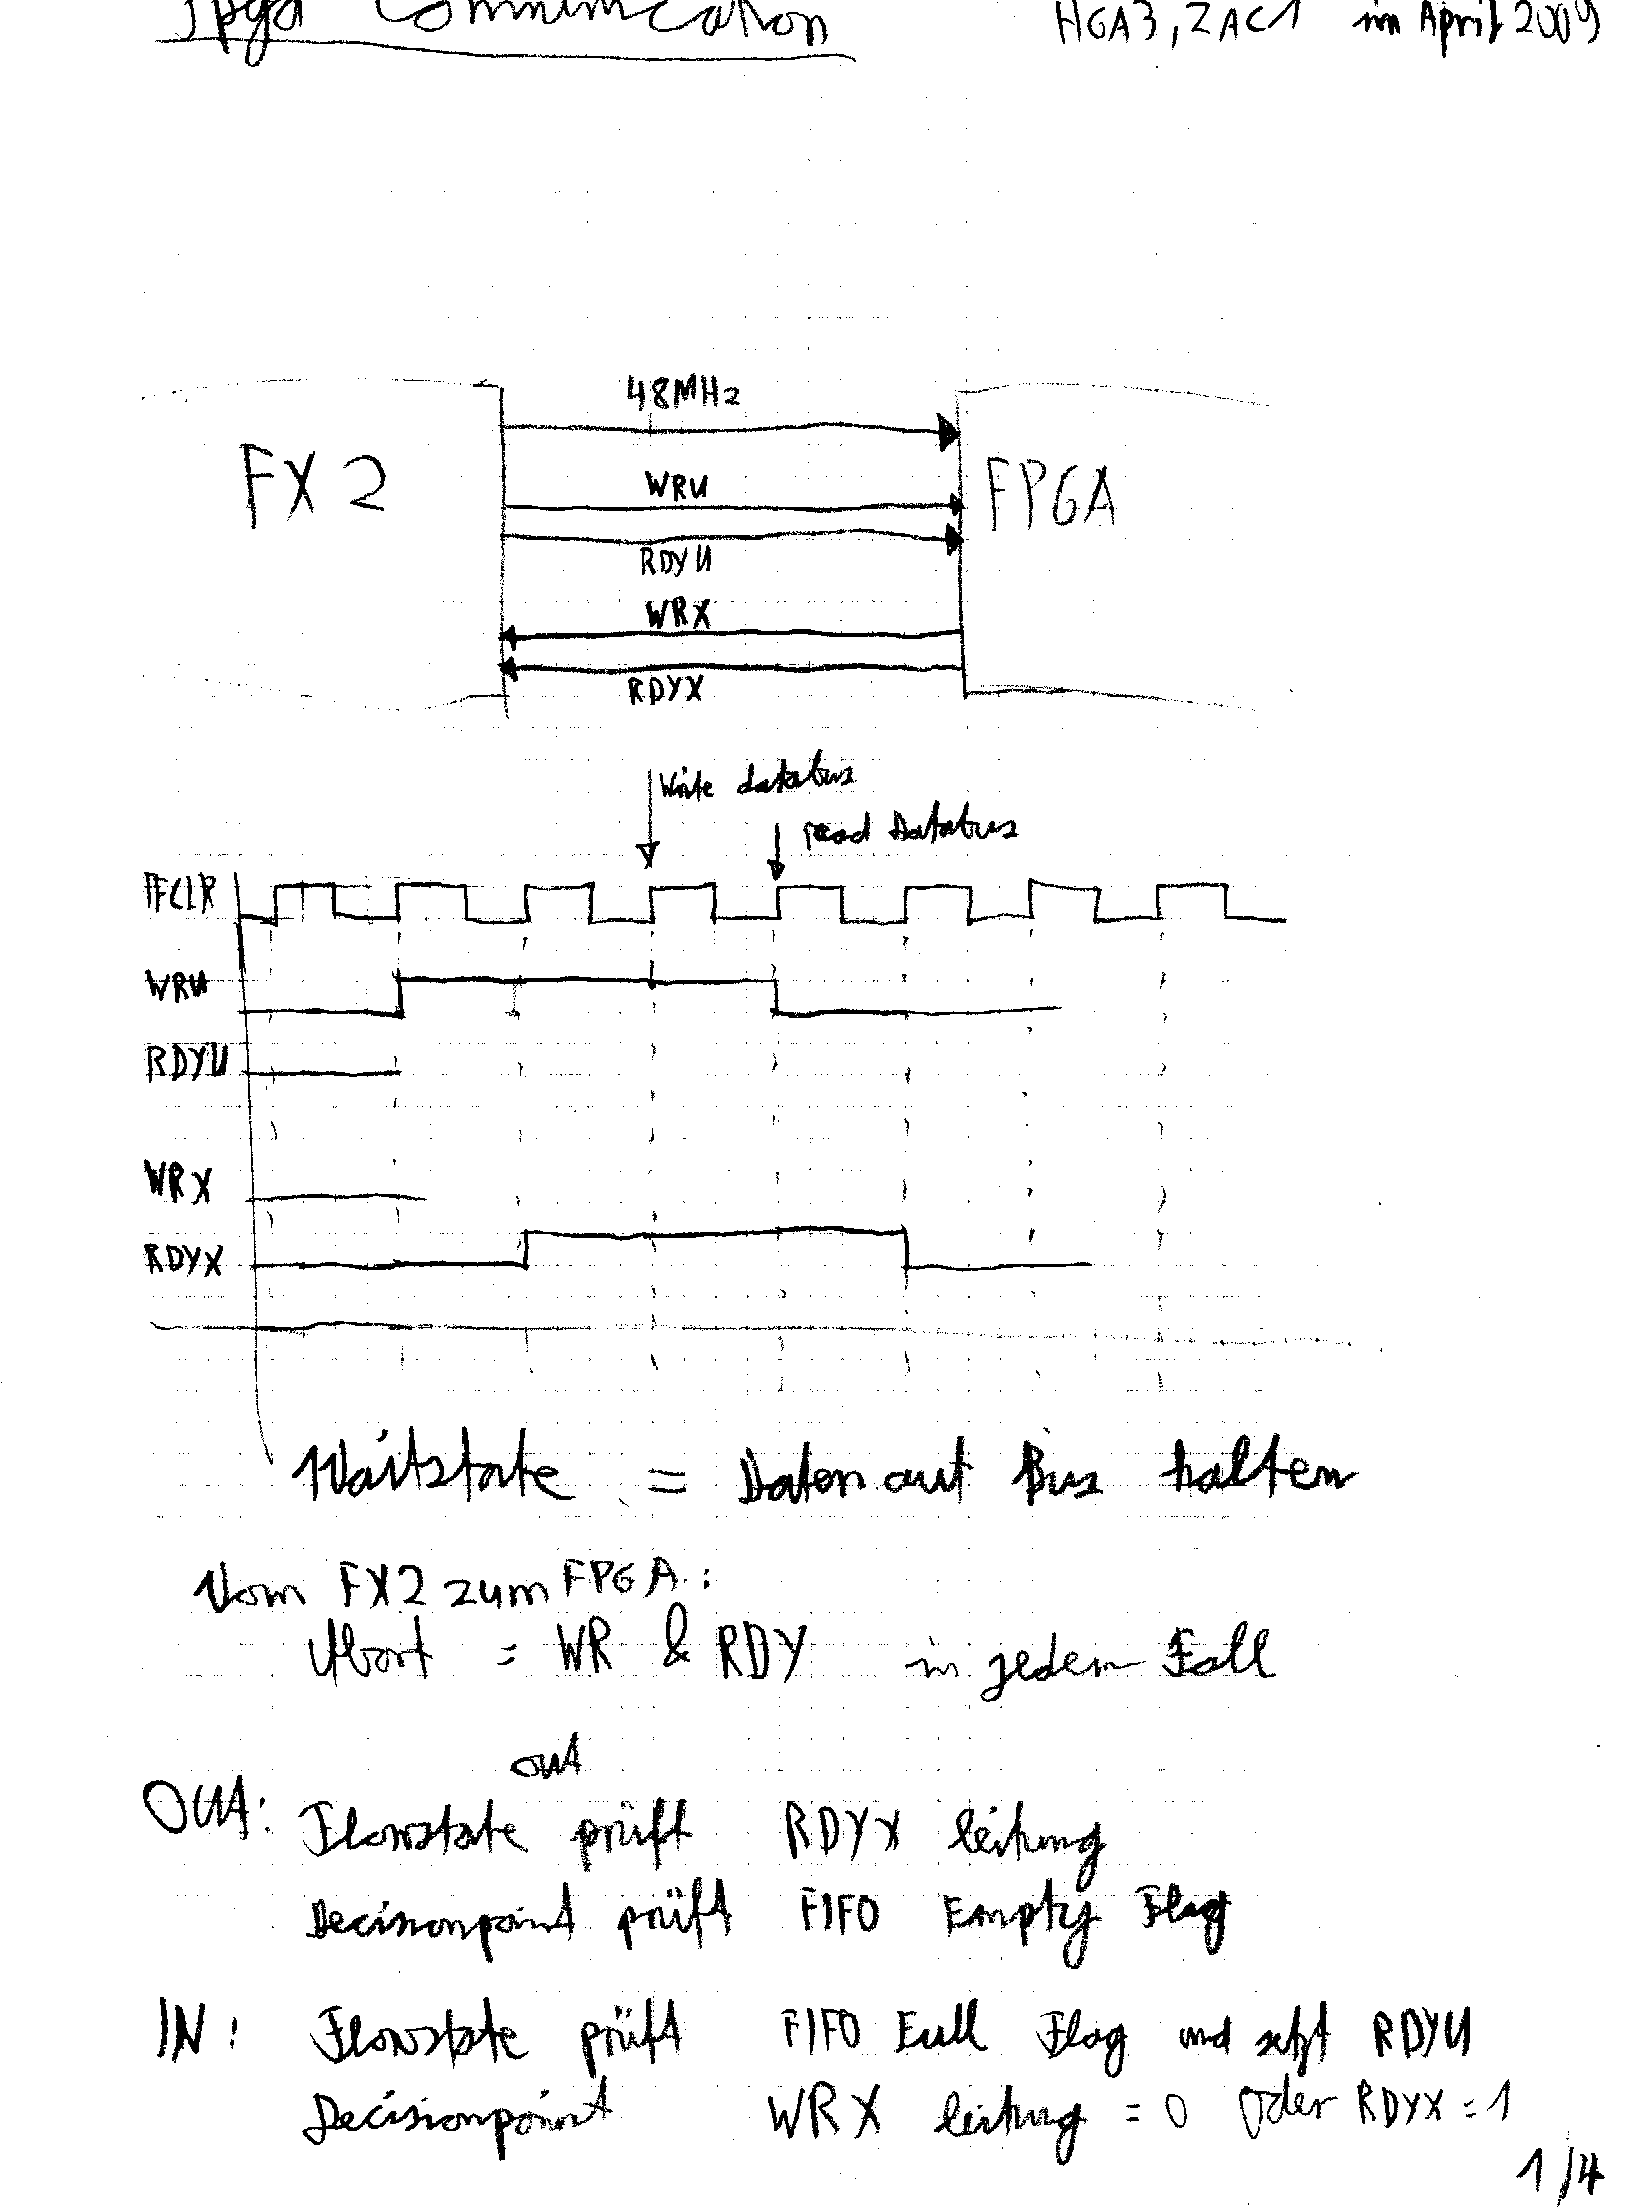 fpga Communication HGA3, ZAC1 im April 2009
48MHz
FX2
WRU
FPGA
RDYU
WRX
RDYX
Write databus
read Databus
IFCLK
WRU
RDYU
WRX
RDYX
Waitstate = Daten auf Bus halten
Vom FX2 zum FPGA:
Abort = WR & RDY in jedem Fall
out
OUT: Flowstate prüft RDYX leitung
Decisionpoint prüft FIFO Empty Flag
IN: Flowstate prüft FIFO Full Flag und setzt RDYU
Decisionpoint WRX leitung = 0 oder RDYX = 1
1/4